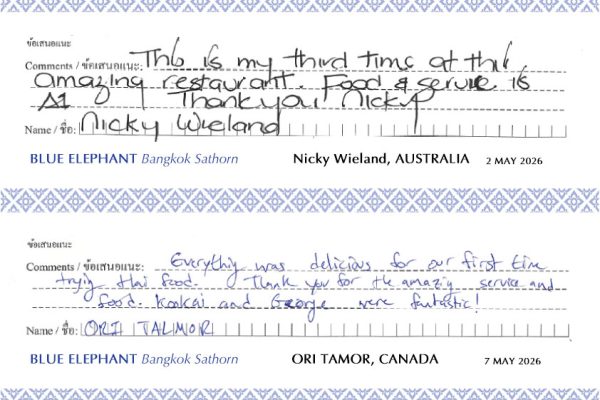 ข้อเสนอแนะ
Comments / ข้อเสนอแนะ: This is my third time at this
amazing restaurant. Food & service is
A1 Thankyou Nicky
Name / ชื่อ: Nicky Wieland
BLUE ELEPHANT Bangkok Sathorn Nicky Wieland, AUSTRALIA 2 MAY 2026
ข้อเสนอแนะ
Comments / ข้อเสนอแนะ: Everything was delicious for our first time
trying thai food. Thank you for the amazing service and
food. Kookai and George were fantastic!
Name / ชื่อ: ORI TALMOR
BLUE ELEPHANT Bangkok Sathorn ORI TAMOR, CANADA 7 MAY 2026